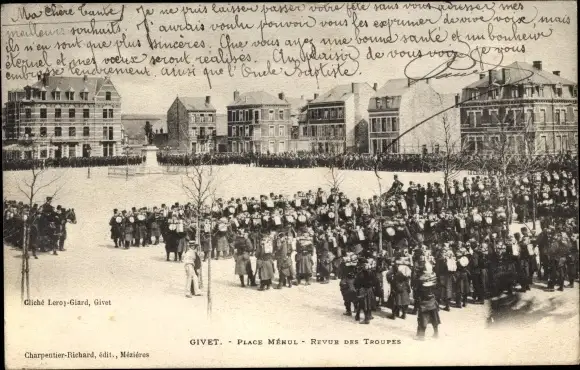 Ma Chère Tante, Je ne puis laisser passer votre fête sans vous adresser mes
meilleurs souhaits. J'aurais voulu pouvoir vous les exprimer de vive voix, mais
ils n'en sont que plus sincères. Que vous ayez une bonne santé et un bonheur
éternel et mes vœux seront réalisés. Au plaisir de vous voir, je vous
embrasse tendrement, ainsi que l'Oncle Baptiste
Cliché Leroy-Giard, Givet
GIVET. - PLACE MÉHUL - REVUE DES TROUPES
Charpentier-Richard, édit., Mézières